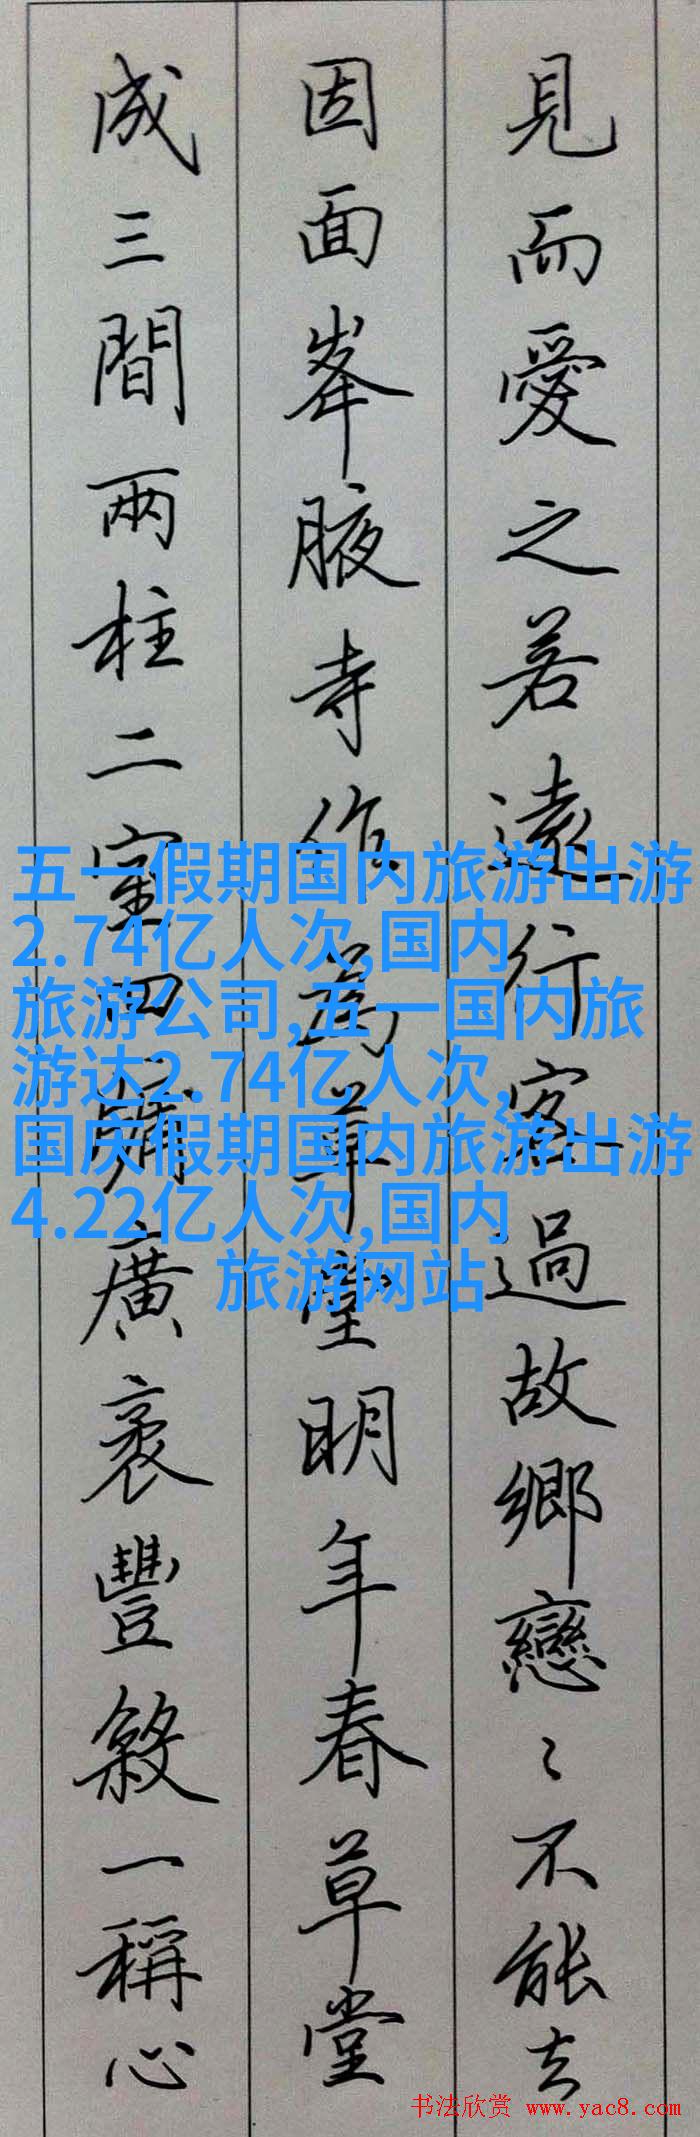 見而愛之若遠行客過故鄉戀〻不能去
因面峯腋寺作為草堂明年春草堂
成三間兩柱二室四牖廣袤豐殺一稱心
五一假期国内旅游出游
2.74亿人次,国内
旅游公司,五一国内旅
游达2.74亿人次,
国庆假期国内旅游出游
4.22亿人次,国内
旅游网站
书法欣赏 www.yac8.com